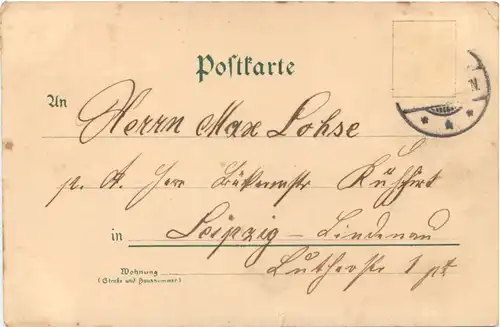 Postkarte
An Herrn Max Lohse
p. A. Herr Bäckermstr
in Leipzig - Lindenau
Lutherstr 1 pt
Wohnung
(Straße und Hausnummer)